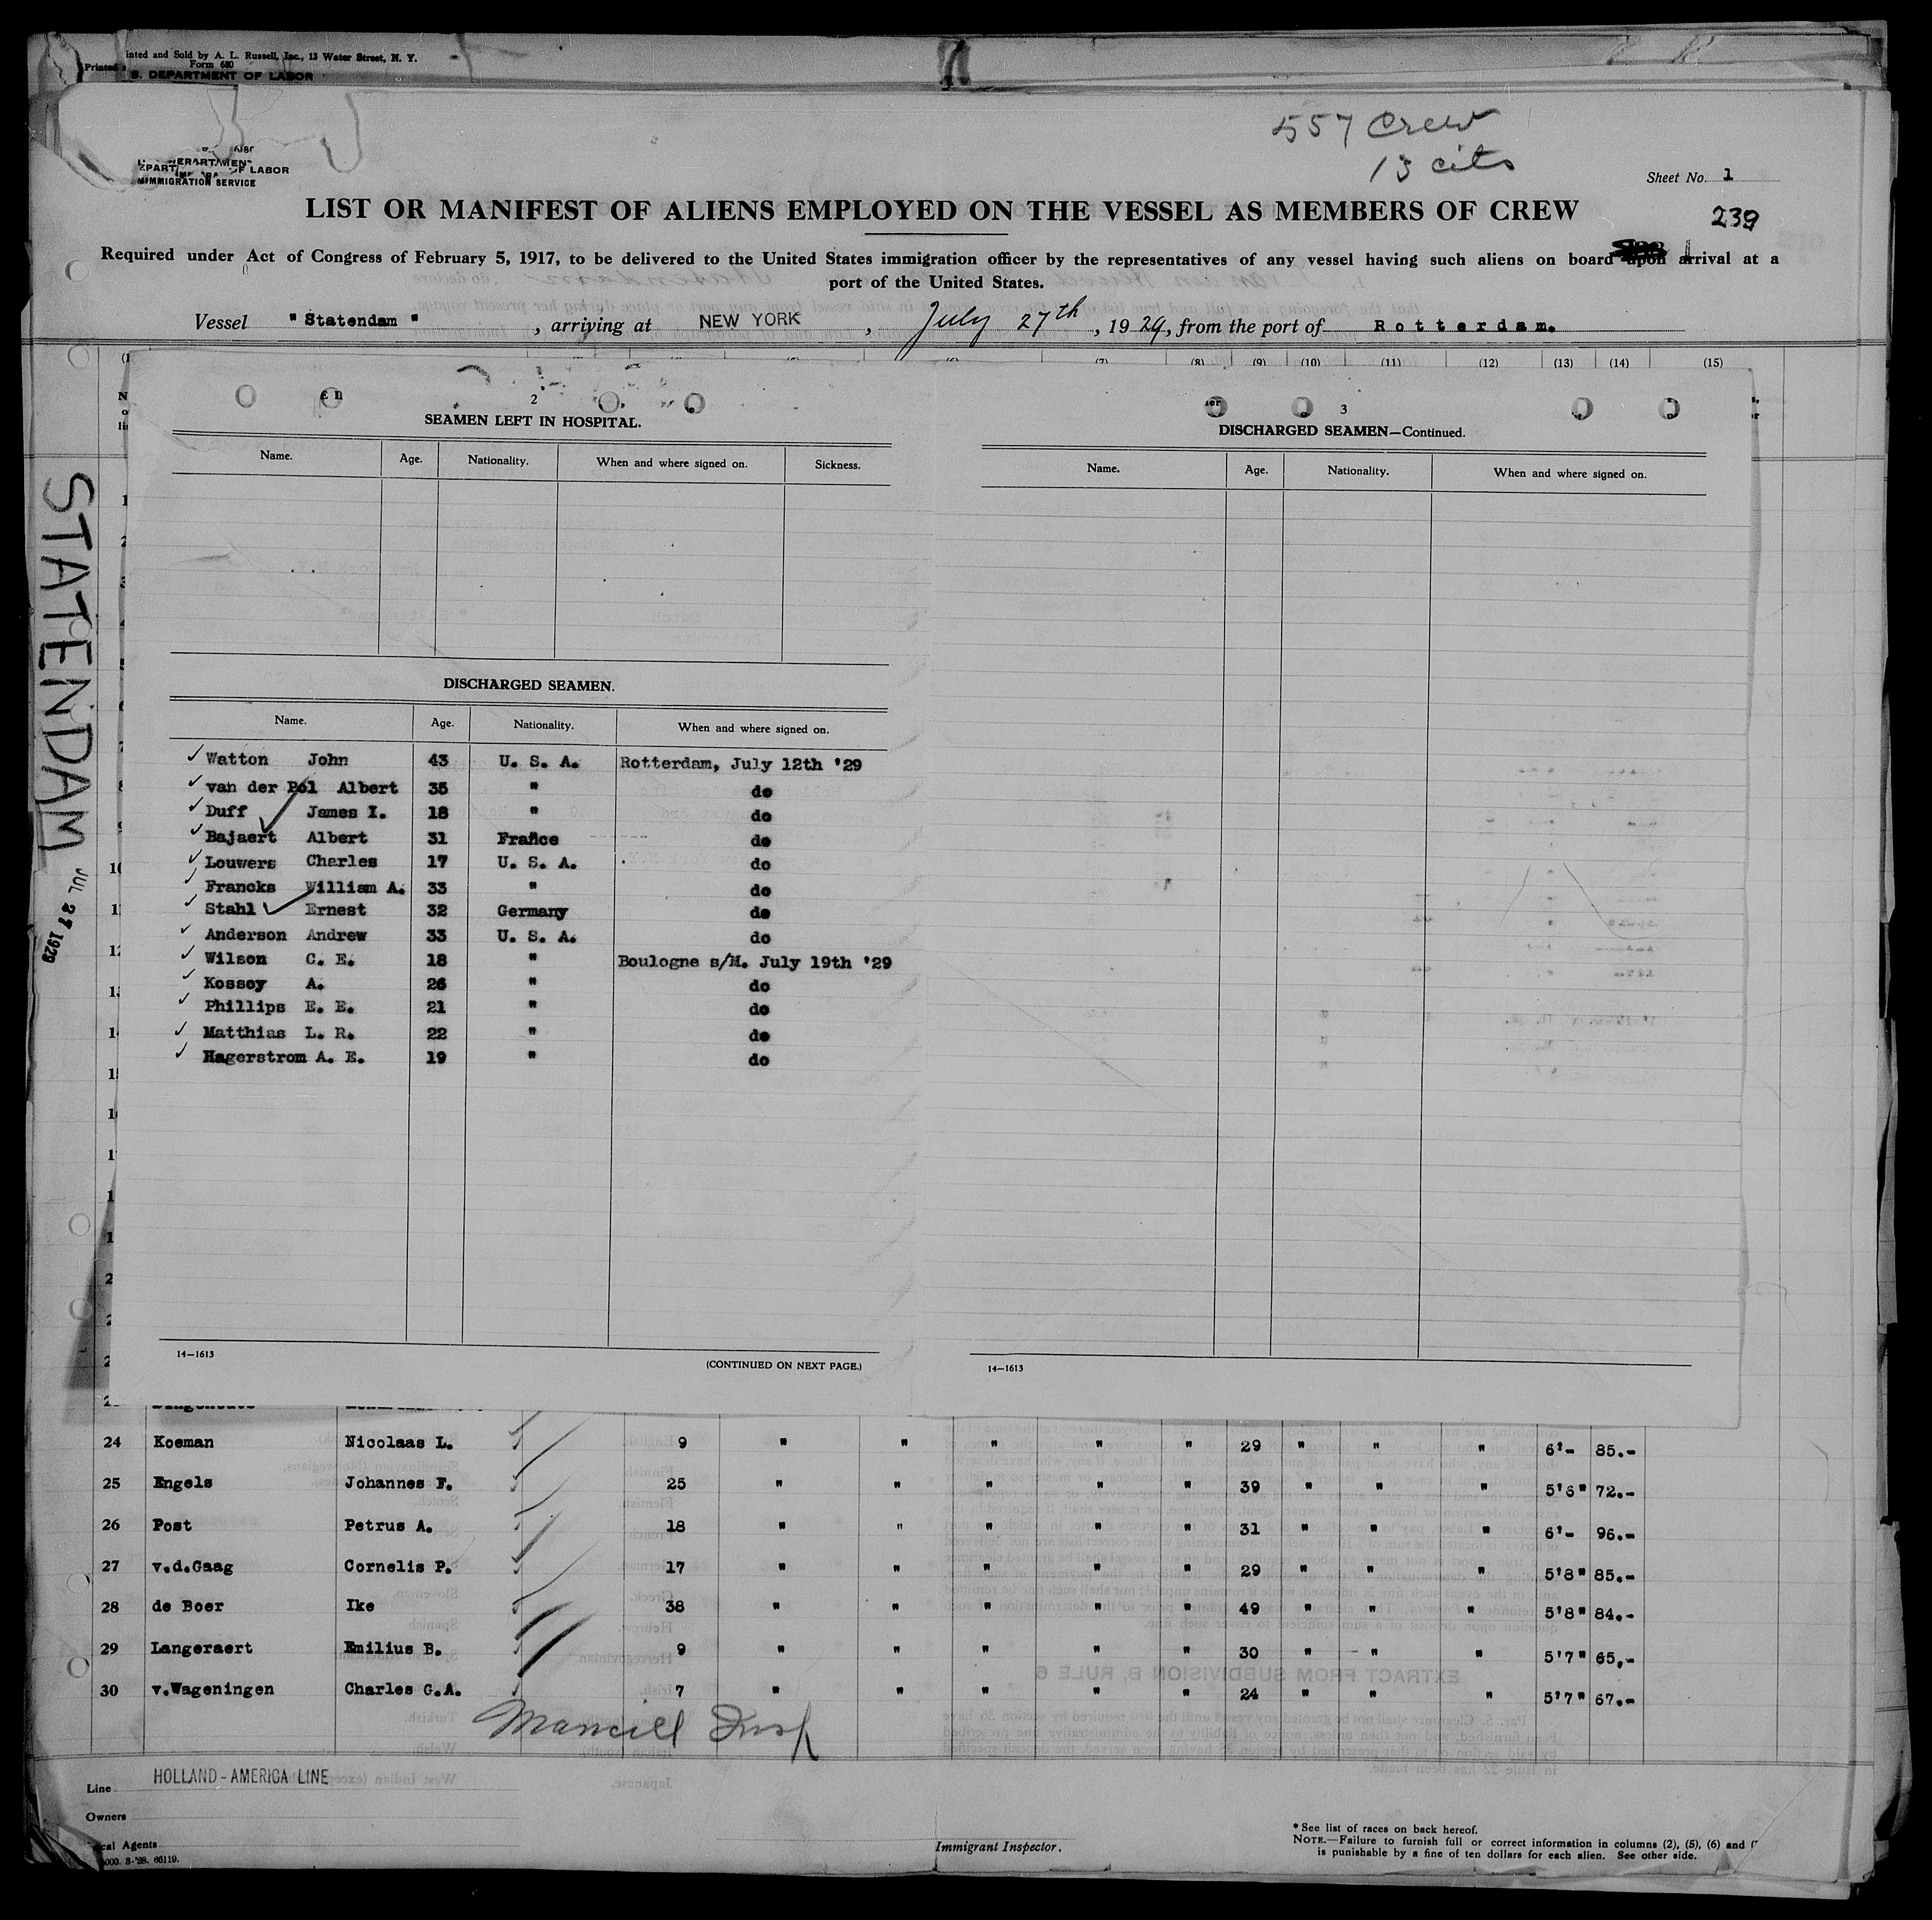 inted and Sold by A. L. Russell, Inc., 13 Water Street, N. Y.
Printed
Form 680
S. DEPARTMENT OF LABOR
557 Crew
13 cits
OF LABOR
IMMIGRATION SERVICE
Sheet No. 1
LIST OR MANIFEST OF ALIENS EMPLOYED ON THE VESSEL AS MEMBERS OF CREW
239
Required under Act of Congress of February 5, 1917, to be delivered to the United States immigration officer by the representatives of any vessel having such aliens on board upon arrival at a
port of the United States.
Vessel "Statendam", arriving at NEW YORK, July 27th, 1929, from the port of Rotterdam.
(7) (8) (9) (10) (11) (12) (13) (14) (15)
STATENDAM
JUL 27 1929
2
SEAMEN LEFT IN HOSPITAL.
Name. Age. Nationality. When and where signed on. Sickness.
DISCHARGED SEAMEN.
Name. Age. Nationality. When and where signed on.
Watton John 43 U. S. A. Rotterdam, July 12th '29
van der Pol Albert 35 " do
Duff James I. 18 " do
Bajaert Albert 31 France do
Louwers Charles 17 U. S. A. do
Francks William A. 33 " do
Stahl Ernest 32 Germany do
Anderson Andrew 33 U. S. A. do
Wilson C. E. 18 " Boulogne s/M. July 19th '29
Kossoy A. 26 " do
Phillips E. E. 21 " do
Matthias L. R. 22 " do
Hagerstrom A. E. 19 " do
14—1613
(CONTINUED ON NEXT PAGE.)
3
DISCHARGED SEAMEN—Continued.
Name. Age. Nationality. When and where signed on.
14—1613
24 Koeman Nicolaas L. 9 " " " " " 29 " " " 6'- 85.-
25 Engels Johannes F. 25 " " " " " 39 " " " 5'6" 72.-
26 Post Petrus A. 18 " " " " " 31 " " " 6'- 96.-
27 v.d.Gaag Cornelis P. 17 " " " " " 29 " " " 5'8" 85.-
28 de Boer Ike 38 " " " " " 49 " " " 5'8" 84.-
29 Langeraert Emilius B. 9 " " " " " 30 " " " 5'7" 65.-
30 v.Wageningen Charles G.A. 7 " " " " " 24 " " " 5'7" 67.-
Line HOLLAND-AMERICA LINE
Owners
cal Agents
000. 3-'28. 66119.
Immigrant Inspector.
* See list of races on back hereof.
NOTE.—Failure to furnish full or correct information in columns (2), (5), (6) and (
is punishable by a fine of ten dollars for each alien. See other side.